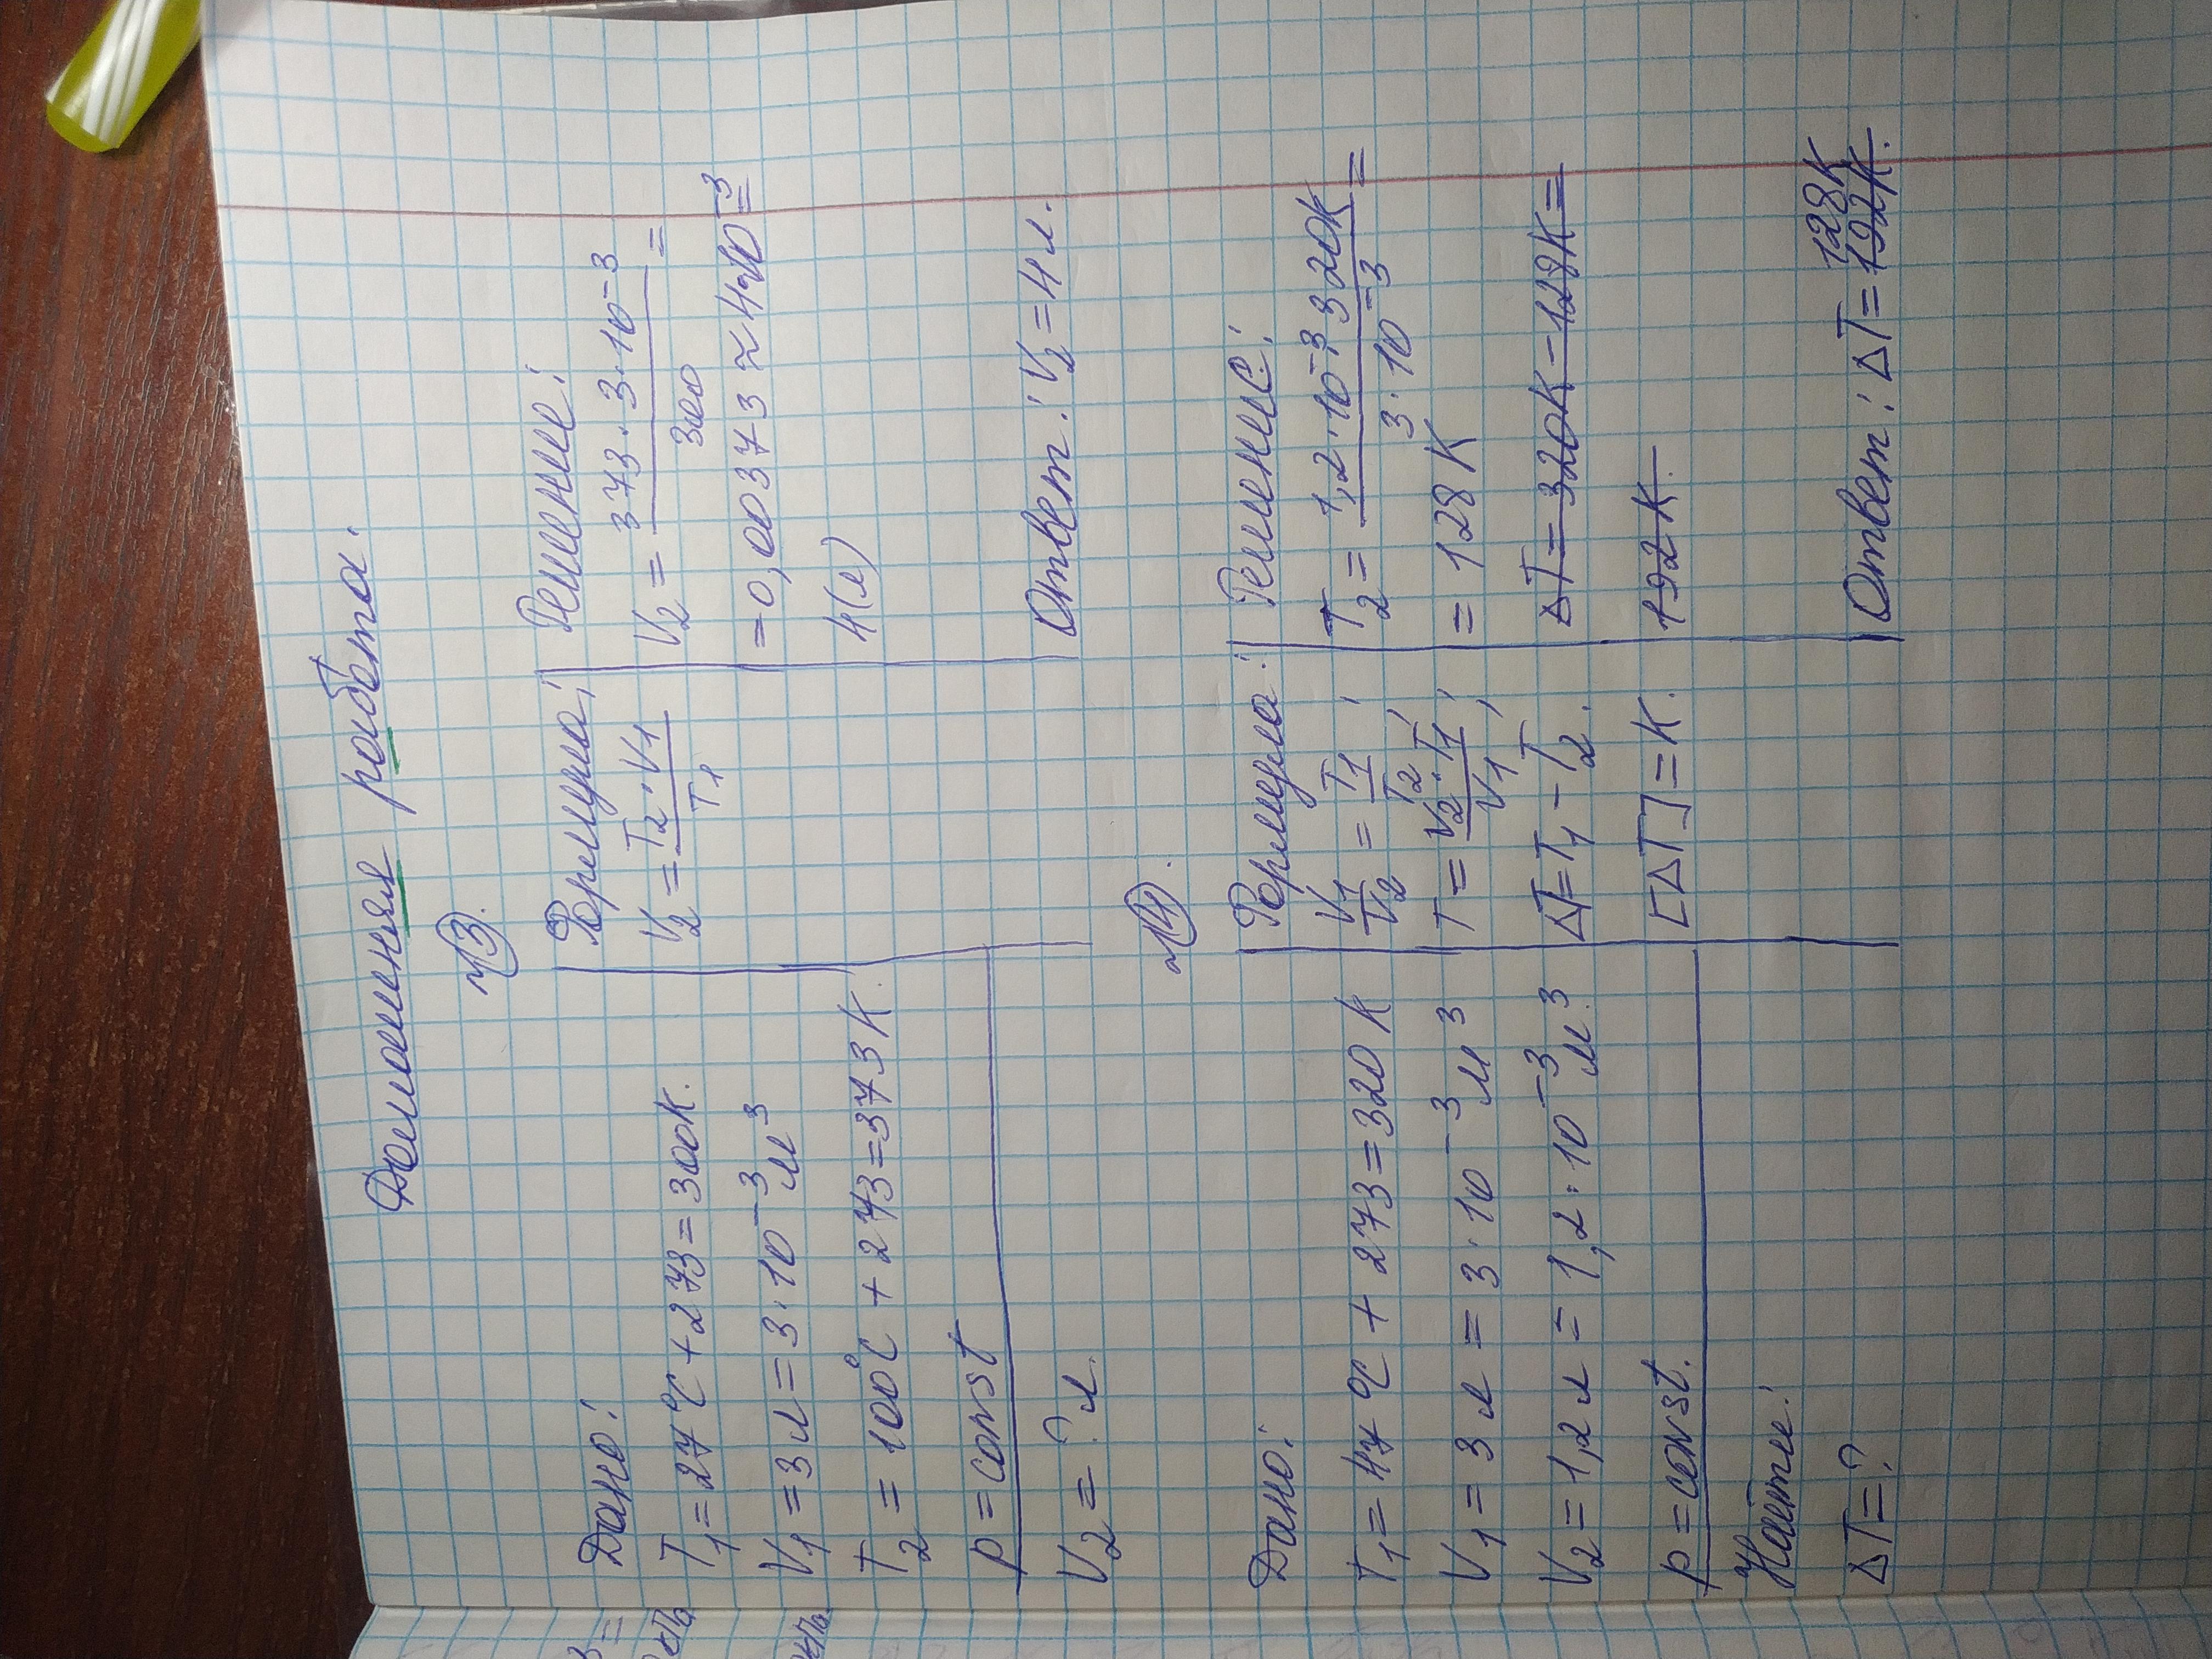 Домашняя работа.
№3.
Дано:
T₁ = 27 °C + 273 = 300K.
V₁ = 3 л = 3 · 10⁻³ м³
T₂ = 100°C + 273 = 373 K.
p = const
V₂ = ? л.
Формула:
V₂ = T₂ · V₁ / T₁
Решение:
V₂ = 373 · 3 · 10⁻³ / 300 =
= 0,00373 ≈ 4·10⁻³ =
4(л)
Ответ: V₂ = 4 л.
№4.
Дано:
T₁ = 47 °C + 273 = 320 K
V₁ = 3 л = 3 · 10⁻³ м³
V₂ = 1,2 л = 1,2 · 10⁻³ м³
p = const.
Найти:
ΔT = ?
Формула:
V₁ / V₂ = T₁ / T₂;
T = V₂ · T₁ / V₁;
ΔT = T₁ - T₂.
[ΔT] = K.
Решение:
T₂ = 1,2 · 10⁻³ · 320K / 3 · 10⁻³ =
= 128 K
ΔT = 320K - 128K =
192 K.
128K
Ответ: ΔT = 192K.